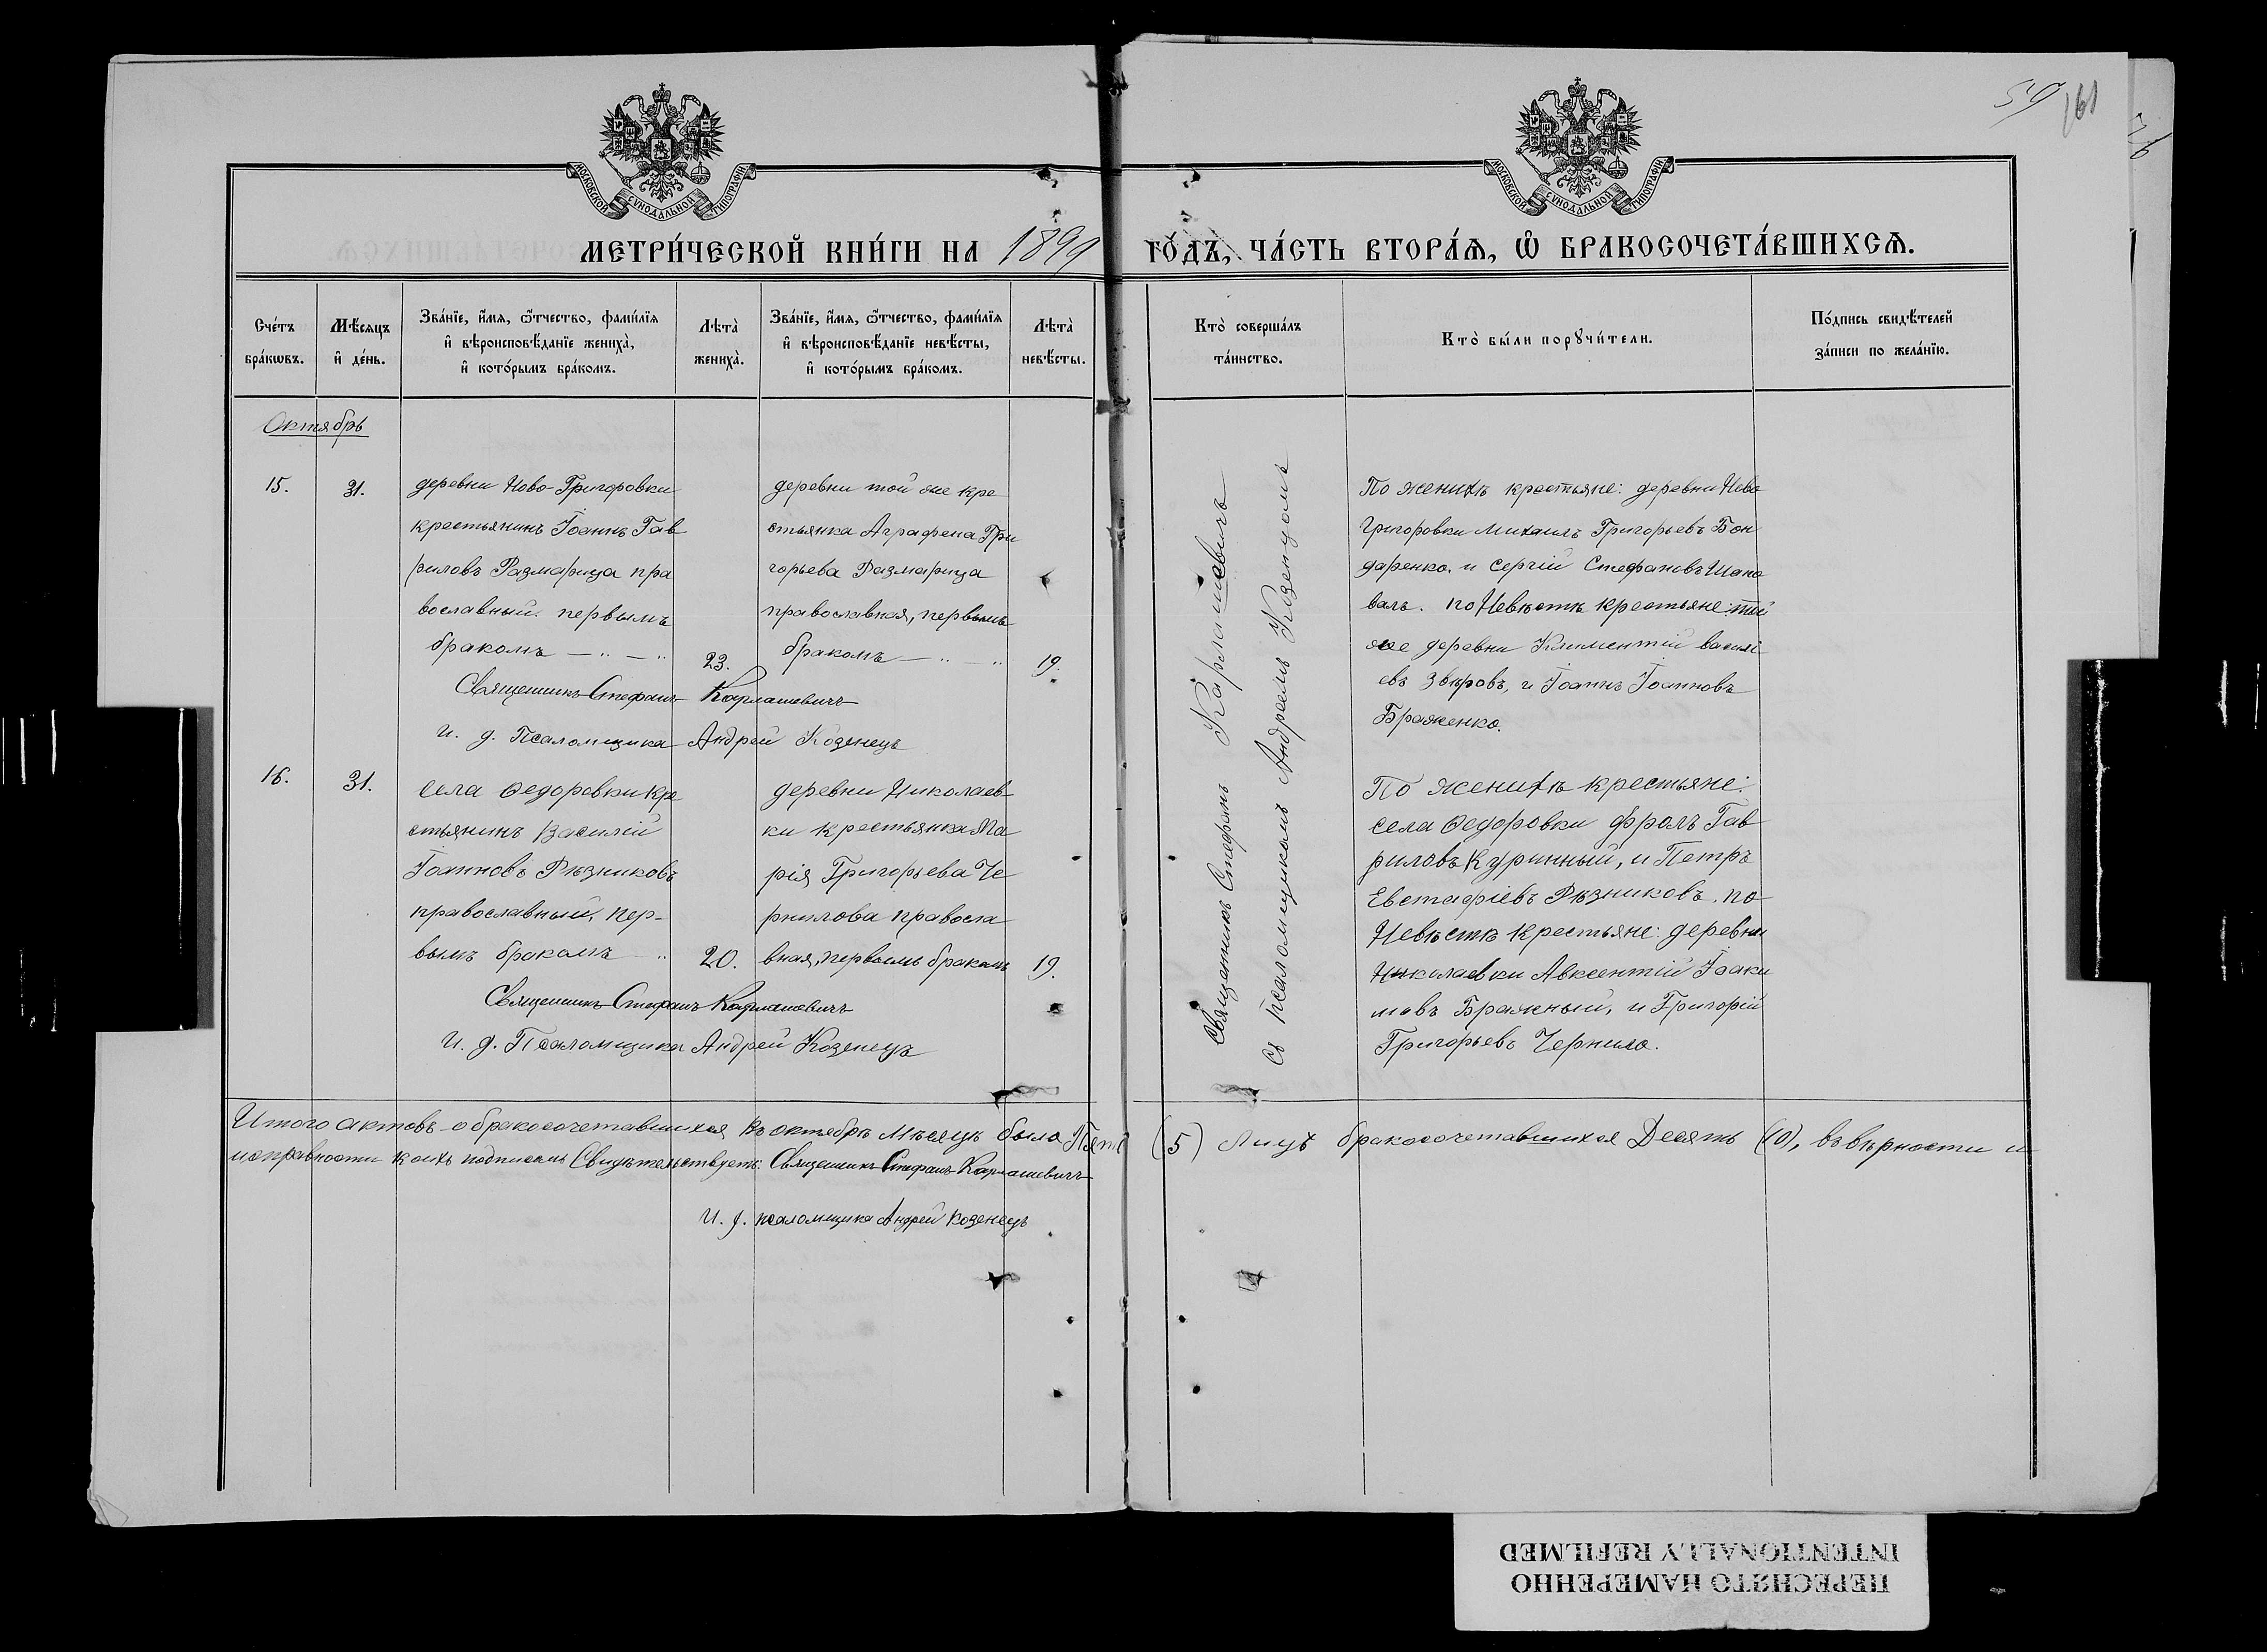 59
161
МОСКОВСКОЙ СѴНОДАЛЬНОЙ ТИПОГРАФІИ
МОСКОВСКОЙ СѴНОДАЛЬНОЙ ТИПОГРАФІИ
МЕТРИ́ЧЕСКОЙ КНИ́ГИ НА 1899 ГО́ДЪ, ЧА́СТЬ ВТОРА́Ѧ, Ѽ БРАКОСОЧЕТА́ВШИХСѦ.
Сче́тъ
бра́кѡвъ.
Мѣ́сяцъ
и҆ де́нь.
Зва́нїе, и҆́мя, ѻ҆́тчество, фамі́лїя
и҆ вѣроисповѣ́данїе жениха̀,
и҆ кото́рымъ бра́комъ.
Лѣта̀
жениха̀.
Зва́нїе, и҆́мя, ѻ҆́тчество, фамі́лїя
и҆ вѣроисповѣ́данїе невѣ́сты,
и҆ кото́рымъ бра́комъ.
Лѣта̀
невѣ́сты.
Кто̀ соверша́лъ
та́инство.
Кто̀ бы́ли порꙋчи́тели.
По́дпись свидѣ́телей
за́писи по жела́нїю.
Октябрь
15.
31.
деревни Ново-Григоровки
крестьянинъ Іоаннъ Гав
риловъ Размарица пра
вославный. первымъ
бракомъ — „ — „
23.
деревни той же кре
стьянка Аграфена Гри
горьева Размарица
православная, первымъ
бракомъ — „ — „
19.
Священникъ Стефанъ Карлашевичъ
И. д. Псаломщика Андрей Козенецъ
Священникъ Стефанъ Карлашевичъ
съ Псаломщикомъ Андреемъ Козенцомъ
По женихѣ крестьяне: деревни Ново
Григоровки Михаилъ Григорьевъ Бон
даренко. и Сергій Стефановъ Шапо
валъ. по Невѣстѣ крестьяне: той
же деревни Климентій василі
евъ Звѣровъ, и Іоаннъ Іоанновъ
Браженко.
16.
31.
Села Ѳедоровки кре
стьянинъ Василій
Іоанновъ Рѣзниковъ
православный, пер-
вымъ бракомъ „
20.
деревни Николаев-
ки крестьянка Ма
рія Григорьева Че
рнилова правосла
вная, первымъ бракомъ
19.
Священникъ Стефанъ Карлашевичъ
И. д. Псаломщика Андрей Козенецъ
По женихѣ крестьяне:
села Ѳедоровки Фролъ Гав
риловъ Куринный, и Петръ
Евстафіевъ Рѣзниковъ. по
Невѣстѣ крестьяне: деревни
Николаевки Авксентій Іоаки
мовъ Бражный, и Григорій
Григорьевъ Чернило.
Итого актовъ о бракосочетавшихся въ октябрѣ Мѣсяцѣ было Пять (5) Лицъ бракосочетавшихся Десять (10), въ вѣрности и
исправности коихъ подписомъ Свидѣтельствуетъ: Священникъ Стефанъ Карлашевичъ
И. д. псаломщика Андрей Козенецъ
ПЕРЕСНЯТО НАМЕРЕННО
INTENTIONALLY REFILMED